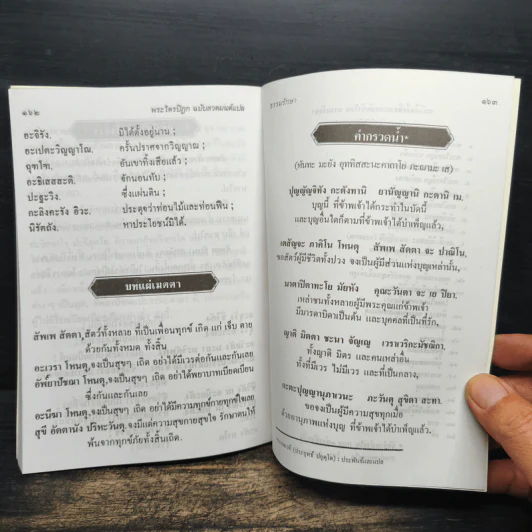 ๑๖๒ พระไตรปิฎก ฉบับสวดมนต์แปล
อะจิรัง. มิได้ตั้งอยู่นาน ;
อะเปตะวิญญาโณ. ครั้นปราศจากวิญญาณ ;
ฉุฑโฑ. อันเขาทิ้งเสียแล้ว ;
อะธิเสสสะติ. จักนอนทับ ;
ปะฐะวิง. ซึ่งแผ่นดิน ;
กะลิงคะรัง อิวะ. ประดุจว่าท่อนไม้และท่อนฟืน ;
นิรัตถัง. หาประโยชน์มิได้.
บทแผ่เมตตา
สัพเพ สัตตา, สัตว์ทั้งหลาย ที่เป็นเพื่อนทุกข์ เกิด แก่ เจ็บ ตาย
ด้วยกันทั้งหมด ทั้งสิ้น
อะเวรา โหนตุ, จงเป็นสุขๆ เถิด อย่าได้มีเวรต่อกันและกันเลย
อัพ๎ยาปัชฌา โหนตุ, จงเป็นสุขๆ เถิด อย่าได้พยาบาทเบียดเบียน
ซึ่งกันและกันเลย
อะนีฆา โหนตุ, จงเป็นสุขๆ เถิด อย่าได้มีความทุกข์กายทุกข์ใจเลย
สุขี อัตตานัง ปริหะรันตุ, จงมีแต่ความสุขกายสุขใจ รักษาตนให้
พ้นจากทุกข์ภัยทั้งสิ้นเถิด.
ธรรมรักษา ๑๖๓
คำกรวดน้ำ*
(หันทะ มะยัง อุททิสสะนะคาถาโย ภะณามะ เส)
ปุญญัสสิทานิ กะตัสสะ ยานัญญานิ กะตานิ เม,
บุญนี้ ที่ข้าพเจ้าได้กระทำในบัดนี้
และบุญอื่นใดก็ตามที่ข้าพเจ้าได้บำเพ็ญแล้ว,
เตสัญจะ ภาคิโน โหนตุ สัพเพ สัตตา จะ ปาณิโน,
ขอสัตว์ผู้มีชีวิตทั้งปวง จงเป็นผู้มีส่วนแห่งบุญเหล่านั้น,
มาตาปิตาทะโย มัยหัง คุณะวันตา จะ เย ปิยา.
เหล่าชนทั้งหลายผู้มีพระคุณแก่ข้าพเจ้า
มีมารดาบิดาเป็นต้น และบุคคลที่เป็นที่รัก,
ญาติ มิตตา ชะนา จัญเญ
ทั้งญาติ มิตร และคนเหล่าอื่น
ทั้งที่มีเวร ไม่มีเวร และที่เป็นกลาง,
ภะวันตุ สุขิตา สะทา.
ขอจงเป็นผู้มีความสุขทุกเมื่อ
ด้วยอานุภาพแห่งบุญ ที่ข้าพเจ้าได้บำเพ็ญแล้ว.